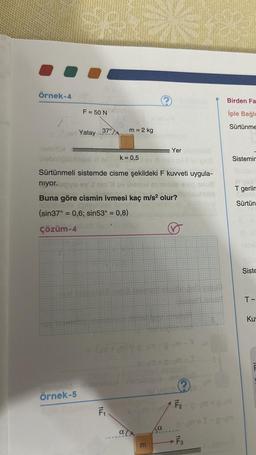 Örnek-4
F = 50 N
Yatay 37° m = 2 kg
Yer
k = 0,5
Sürtünmeli sistemde cisme şekildeki F kuvveti uygula-
nıyor.
Buna göre cismin ivmesi kaç m/s² olur?
(sin37° = 0,6; sin53° = 0,8)
Çözüm-4
Örnek-5
F₁
F₂
α
α
m
F₃
Birden Fa
İple Bağlı
Sürtünme
Sistemin
T gerilm
Sürtün
Siste
T –